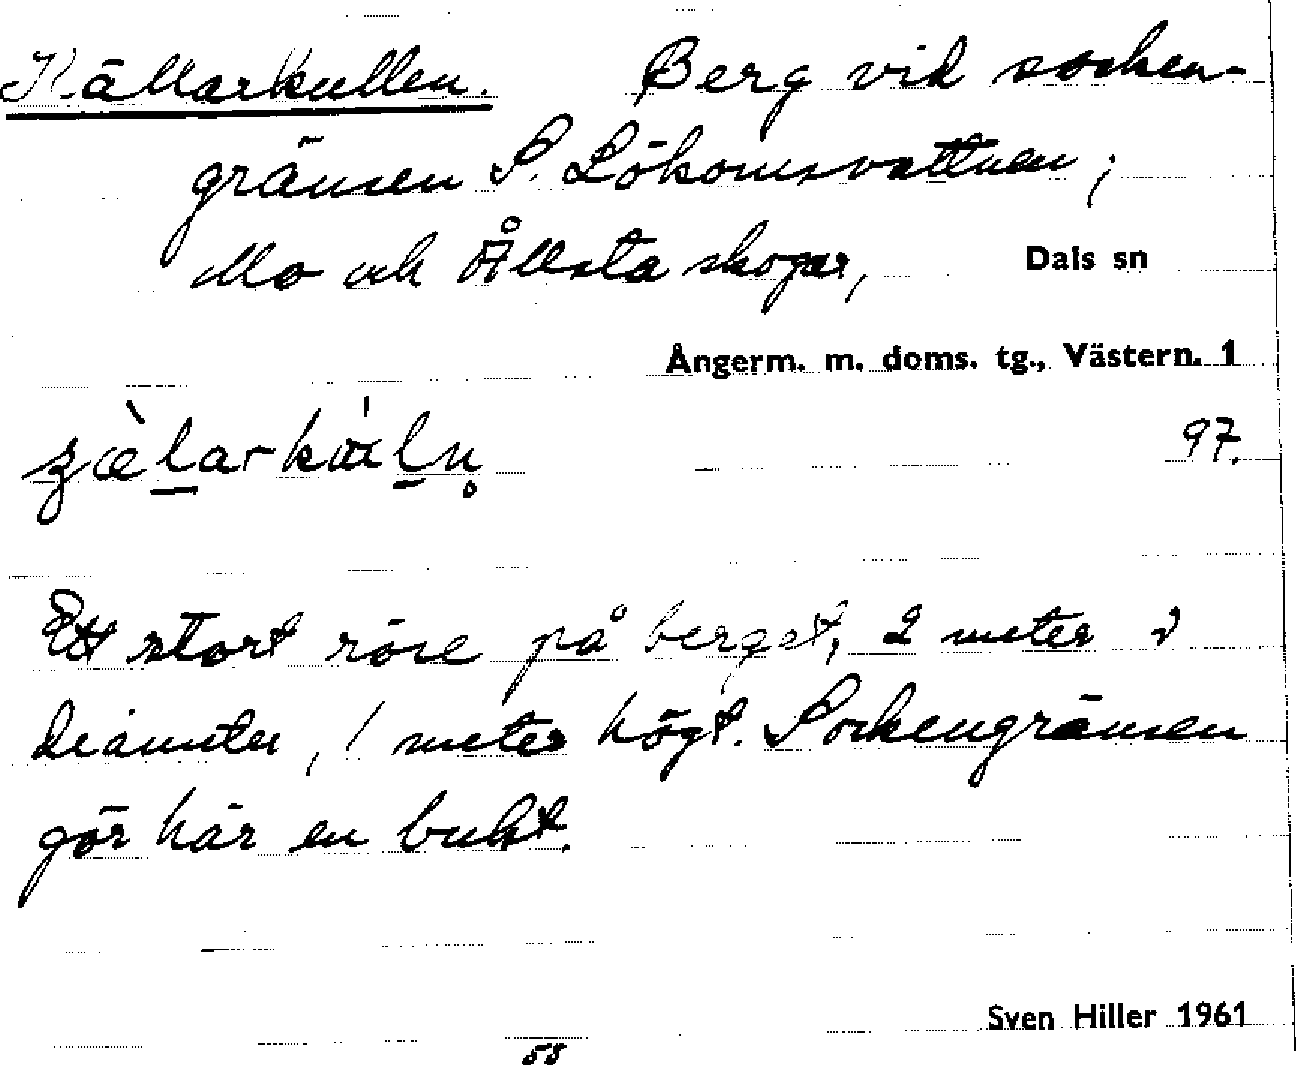 Källarkullen. Berg vid socken-
gränsen S. Lökomsvattnen;
Mo och Ållsta skogar, Dals sn
Ångerm. m. doms. tg., Västern. 1
97.
Ett stort röse på berget, 2 meter i
diameter, 1 meter högt. Sockengränsen
gör här en bukt.
Sven Hiller 1961
58